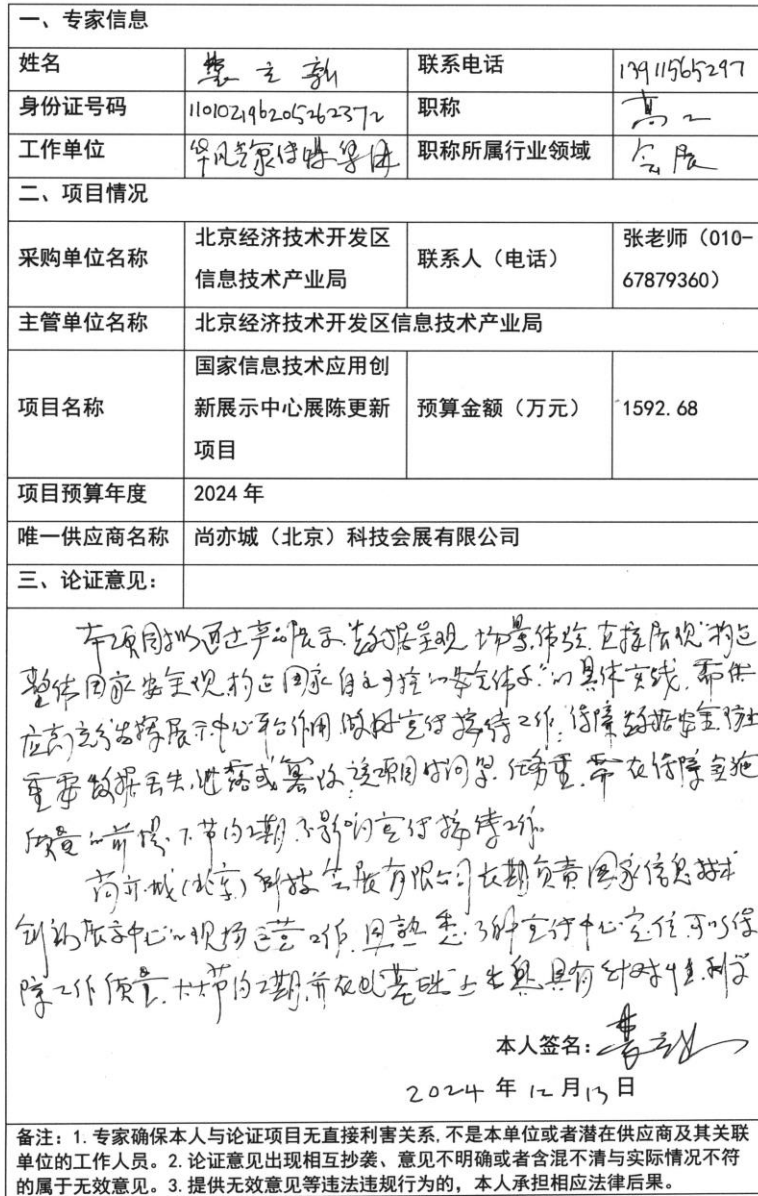 一、专家信息
姓名 立新 联系电话 13911565297
身份证号码 110102196205262372 职称 高工
工作单位 华风气象传媒集团 职称所属行业领域 会展
二、项目情况
采购单位名称 北京经济技术开发区信息技术产业局 联系人（电话） 张老师（010-67879360）
主管单位名称 北京经济技术开发区信息技术产业局
项目名称 国家信息技术应用创新展示中心展陈更新项目 预算金额（万元） 1592.68
项目预算年度 2024 年
唯一供应商名称 尚亦城（北京）科技会展有限公司
三、论证意见：
本项目拟通过产品展示、数据呈现、场景体验，直接展现“构建
整体国家安全观，构建国家自主可控的安全体系”的具体实践，需供
应商充分发挥展示中心平台作用，做好宣传接待工作；保障数据安全，防止
重要数据丢失、泄露或篡改，该项目时间紧，任务重，需在保障实施
质量的前提下节约工期，不影响宣传接待工作。
尚亦城（北京）科技会展有限公司长期负责国家信息技术
创新展示中心的现场运营工作，因熟悉了解宣传中心定位，可以保
障工作质量，大大节约工期，并在此基础上 具有针对性、科学
本人签名：
2024 年 12 月 13 日
备注：1. 专家确保本人与论证项目无直接利害关系, 不是本单位或者潜在供应商及其关联
单位的工作人员。2. 论证意见出现相互抄袭、意见不明确或者含混不清与实际情况不符
的属于无效意见。3. 提供无效意见等违法违规行为的，本人承担相应法律后果。